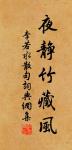 夜靜竹藏風
李若水散句詞典網集